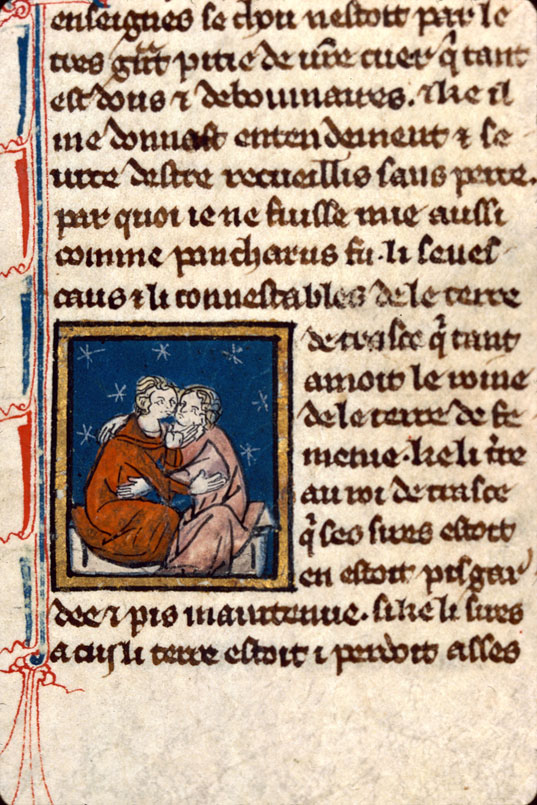 enseignies se chou nestoit par le
tres gñt pitie de ure cuer q̃ tant
est dous ⁊ debounaires. ⁊ ke il
me donnast entendement ⁊ se
urte destre recueillis sans perre.
par quoi ie ne fuisse mie aussi
comme pancharus fu. li senes
caus ⁊ li connestables de le terre
de trasce q̃ tant
amoit le roine
de le terre de fe
menie. ke li tr̃e
au roi de trasce
q̃ ses sires estoit
en estoit pis gar
dee ⁊ pis maintenue. si ke li sires
a cuj li terre estoit i perdoit asses